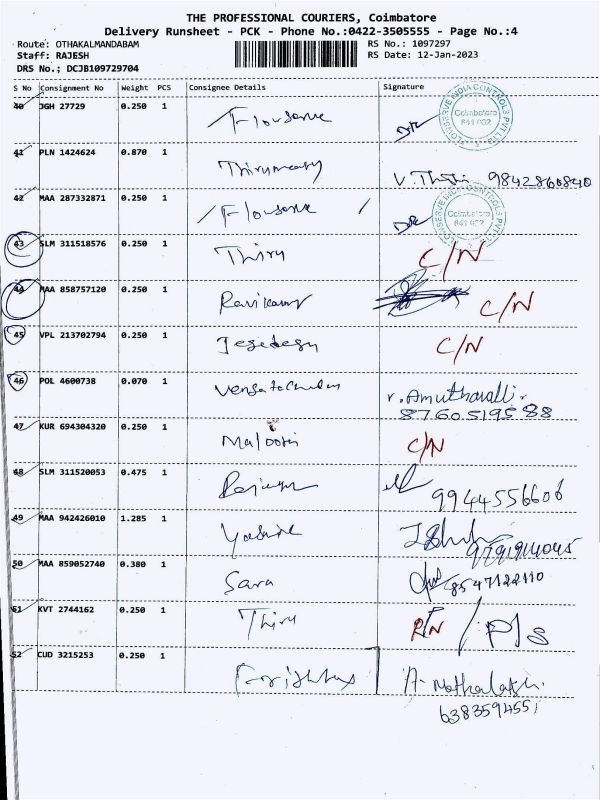 THE PROFESSIONAL COURIERS, Coimbatore
Delivery Runsheet - PCK - Phone No.:0422-3505555 - Page No.:4
Route: OTHAKALMANDABAM RS No.: 1097297
Staff: RAJESH RS Date: 12-Jan-2023
DRS No.; DCJB109729704
S No Consignment No Weight PCS Consignee Details Signature
40 JGH 27729 0.250 1 Flowserve
41 PLN 1424624 0.870 1 9842860840
42 MAA 287332871 0.250 1 Flowserve
43 SLM 311518576 0.250 1 Thiru C/N
44 MAA 858757120 0.250 1 Ravikumar C/N
45 VPL 213702794 0.250 1 C/N
46 POL 4600738 0.070 1 r. Amuthavalli.
8760519588
47 KUR 694304320 0.250 1 C/N
48 SLM 311520053 0.475 1 9944556606
49 MAA 942426010 1.285 1
50 MAA 859052740 0.380 1 Sara 8547122110
51 KVT 2744162 0.250 1 Thiru R/N / P/S
52 CUD 3215253 0.250 1
6383594551